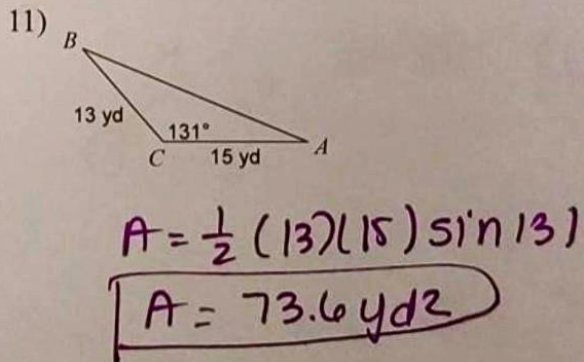 11)
B
13 yd
131°
C
15 yd
A
A = 1/2 (13)(15) sin 131
A = 73.6 yd2